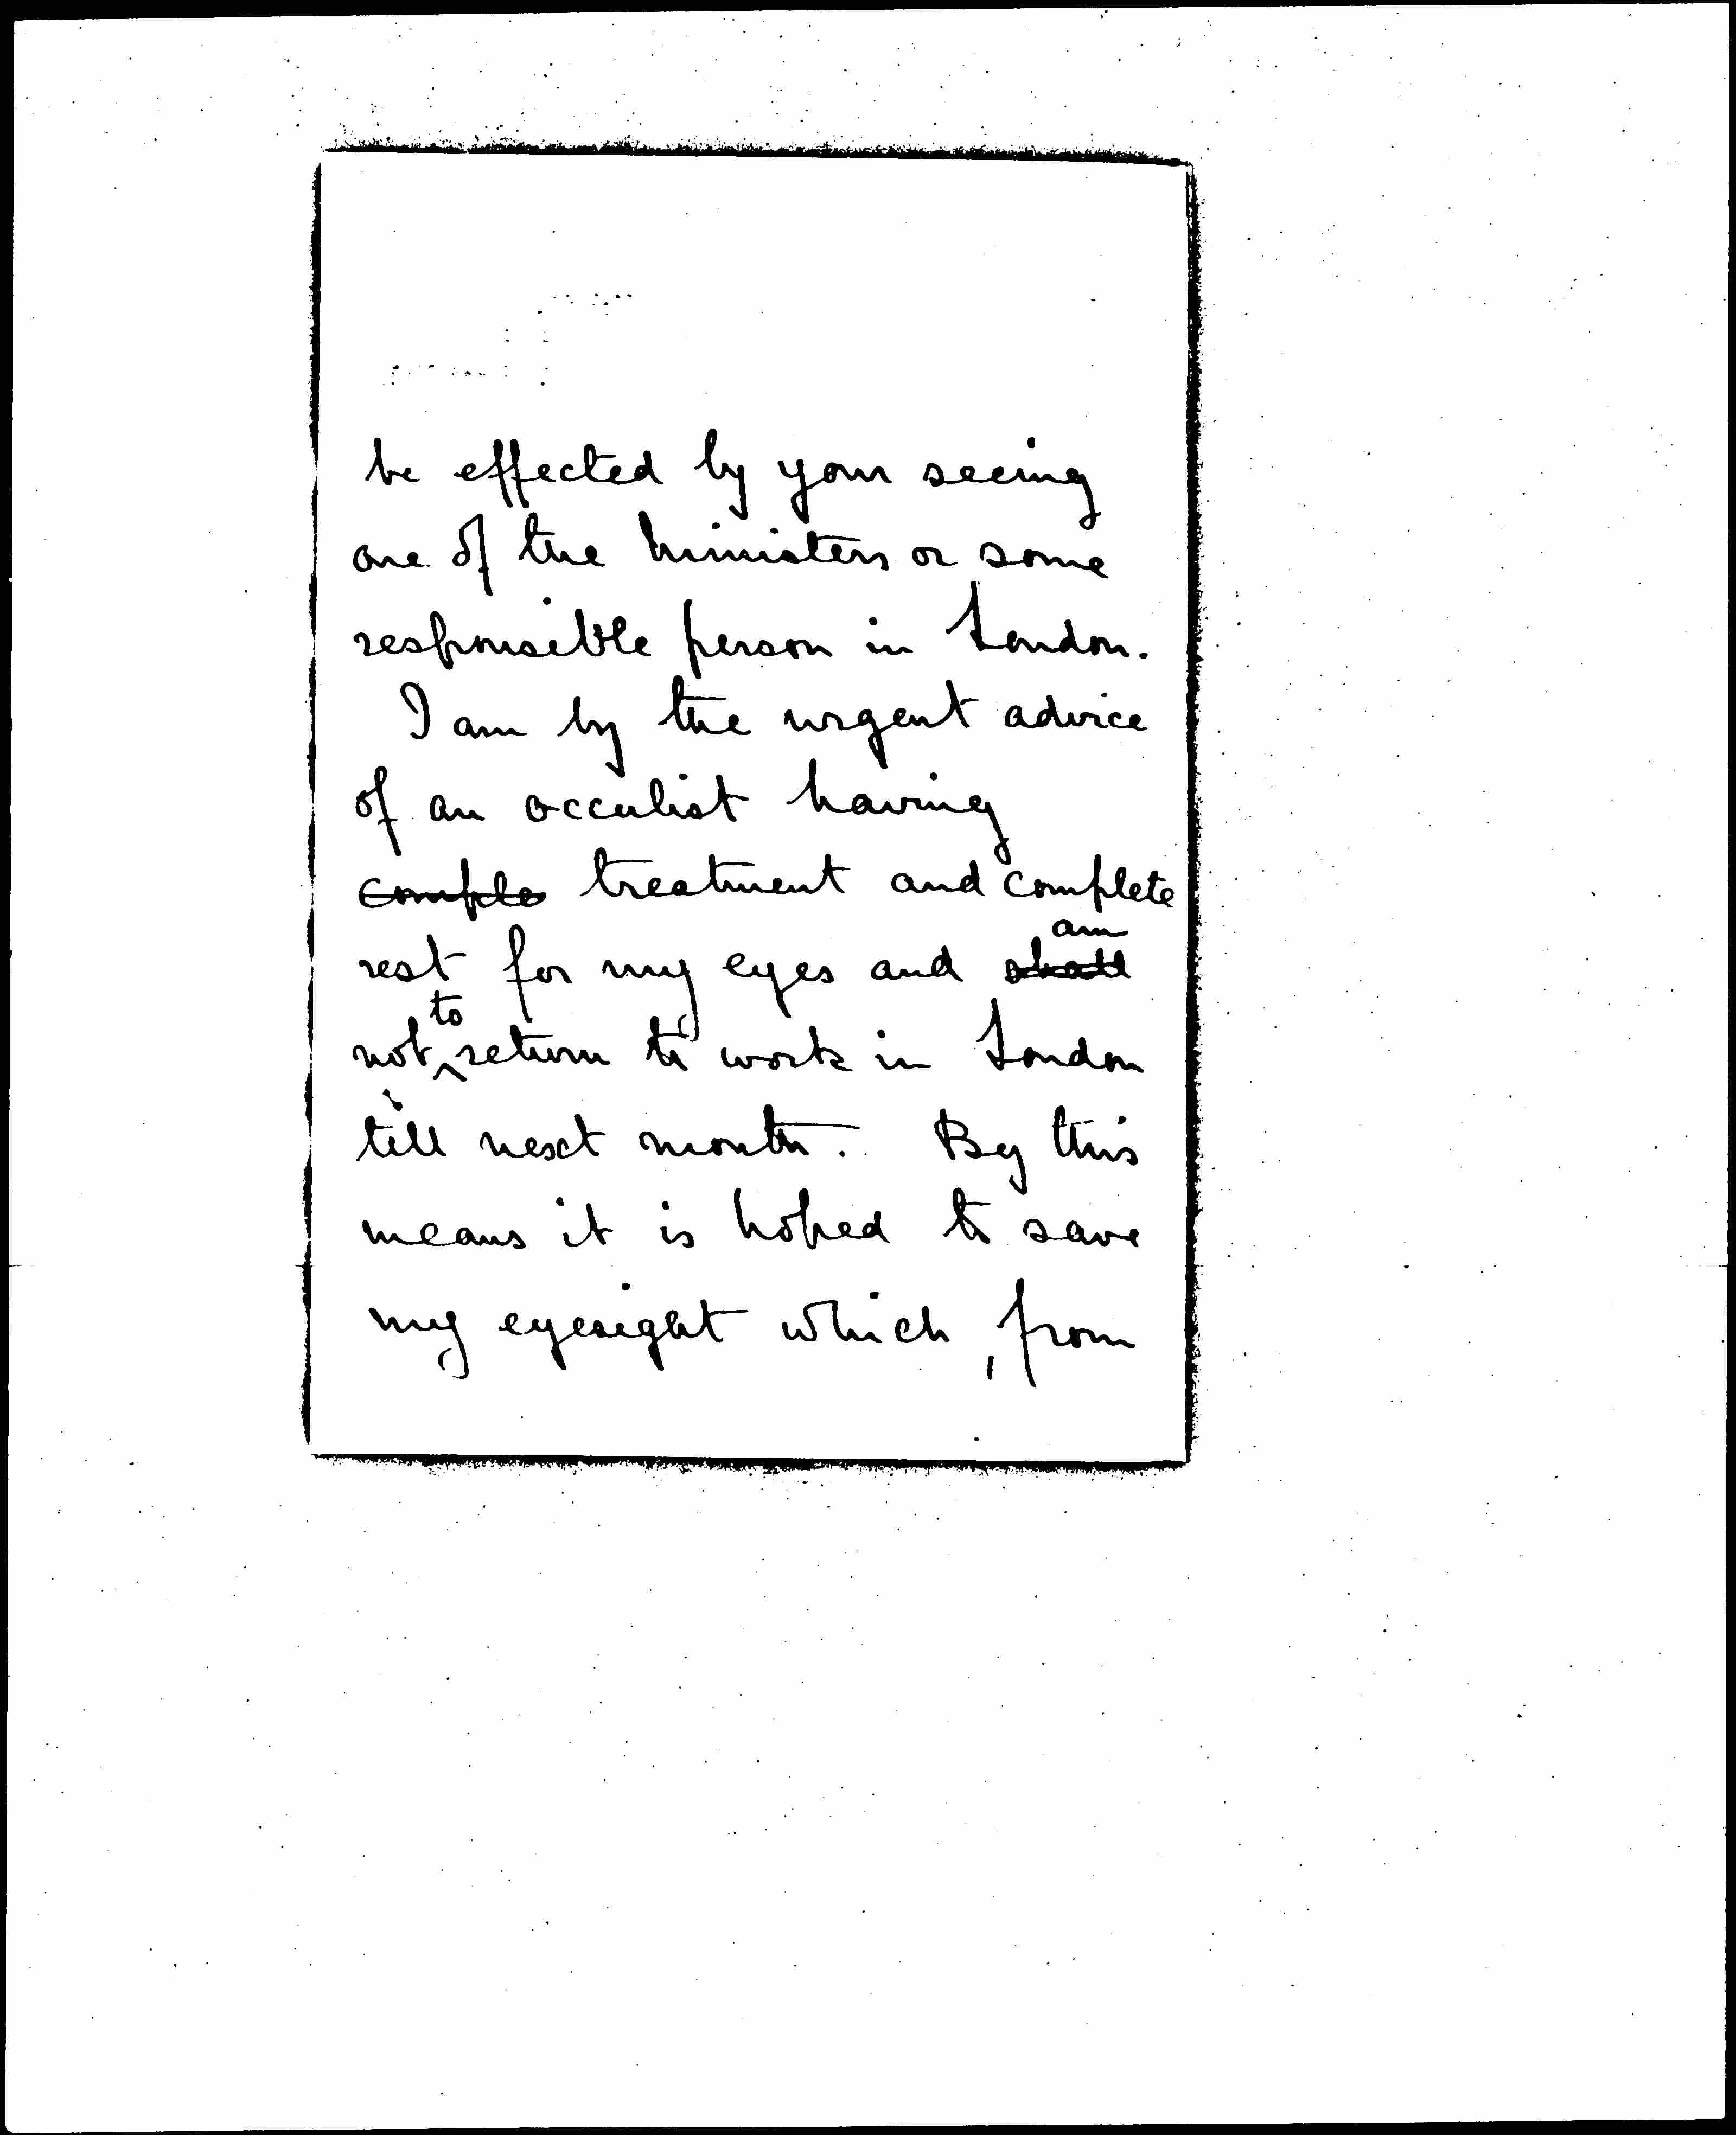 be effected by your seeing
one of the ministers or some
responsible person in London.
I am by the urgent advice
of an occulist having
comple treatment and complete
am
rest for my eyes and shall
to
not return to work in London
till next month. By this
means it is hoped to save
my eyesight which, from